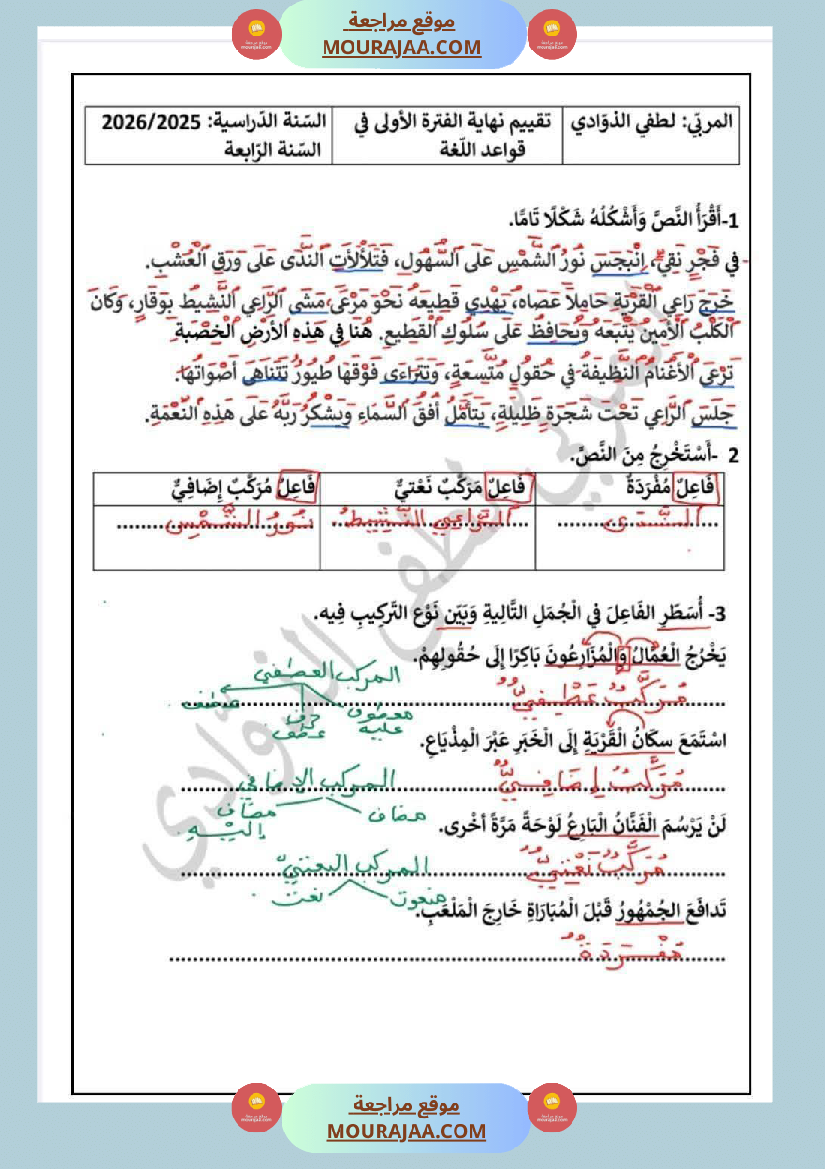 موقع مراجعة
MOURAJAA.COM
المربّي: لطفي الذوّادي
تقييم نهاية الفترة الأولى في قواعد اللّغة
السّنة الدّراسية: 2026/2025
السّنة الرّابعة
1-أَقْرَأُ النَّصَّ وَأَشْكُلُهُ شَكْلًا تَامًّا.
في فَجْرٍ نَقِيٍّ، اِنْبَجَسَ نُورُ الشَّمْسِ عَلَى السُّهُولِ، فَتَلَأْلَأَتِ النَّدَى عَلَى وَرَقِ الْعُشْبِ.
خَرَجَ رَاعِي الْقَرْيَةِ حَامِلاً عَصَاه، يَهْدِي قَطِيعَهُ نَحْوَ مَرْعَى، مَشَى الرَّاعِي النَّشِيطُ بِوَقَارٍ، وَكَانَ
الْكَلْبُ الْأَمِينُ يَتْبَعُهُ وَيُحَافِظُ عَلَى سُلُوكِ الْقَطِيعِ. هُنَا فِي هَذِهِ الْأَرْضِ الْخِصْبَةِ
تَرْعَى الْأَغْنَامُ النَّظِيفَةُ فِي حُقُولٍ مُتَّسِعَةٍ، وَتَتَرَاءَى فَوْقَهَا طُيُورٌ تَتَنَاهَى أَصْوَاتُهَا.
جَلَسَ الرَّاعِي تَحْتَ شَجَرَةٍ ظَلِيلَةٍ، يَتَأَمَّلُ أُفُقَ السَّمَاءِ وَيَشْكُرُ رَبَّهُ عَلَى هَذِهِ النِّعْمَةِ.
2 -أَسْتَخْرِجُ مِنَ النَّصِّ.
فَاعِلٌ مُفْرَدَةٌ
فَاعِلٌ مَرَكَّبٌ نَعْتيٌّ
فَاعِلٌ مُرَكَّبٌ إِضَافِيٌّ
النَّدَى
الرَّاعِي النَّشِيطُ
نُورُ الشَّمْسِ
3- أُسَطّرِ الفَاعِلَ في الْجُمَلِ التَّالِيةِ وَبَيّن نَوْعَ التَّركِيبِ فِيه.
يَخْرُجُ الْعُمَّالُ وَالْمُزَارِعُونَ بَاكِرًا إِلَى حُقُولِهِمْ.
المركب العطفي
مُرَكَّبٌ عَطْفِيٌّ
معطوف عليه
حرف عطف
معطوف
اسْتَمَعَ سكَانُ الْقَرْيَةِ إِلَى الْخَبَرِ عَبْرَ الْمِذْيَاعِ.
مُرَكَّبٌ إِضَافِيٌّ
المركب الإضافي
مضاف
مضاف إليه
لَنْ يَرْسُمَ الْفَنَّانُ الْبَارِعُ لَوْحَةً مَرَّةً أخْرى.
مُرَكَّبٌ نَعْتِيٌّ
المركب النعتي
منعوت
نعت
تَدافَعَ الجُمْهُورُ قَبْلَ الْمُبَارَاةِ خَارِجَ الْمَلْعَبِ.
مُفْرَدَةٌ
المربي لطفي الذوّادي
موقع مراجعة
MOURAJAA.COM